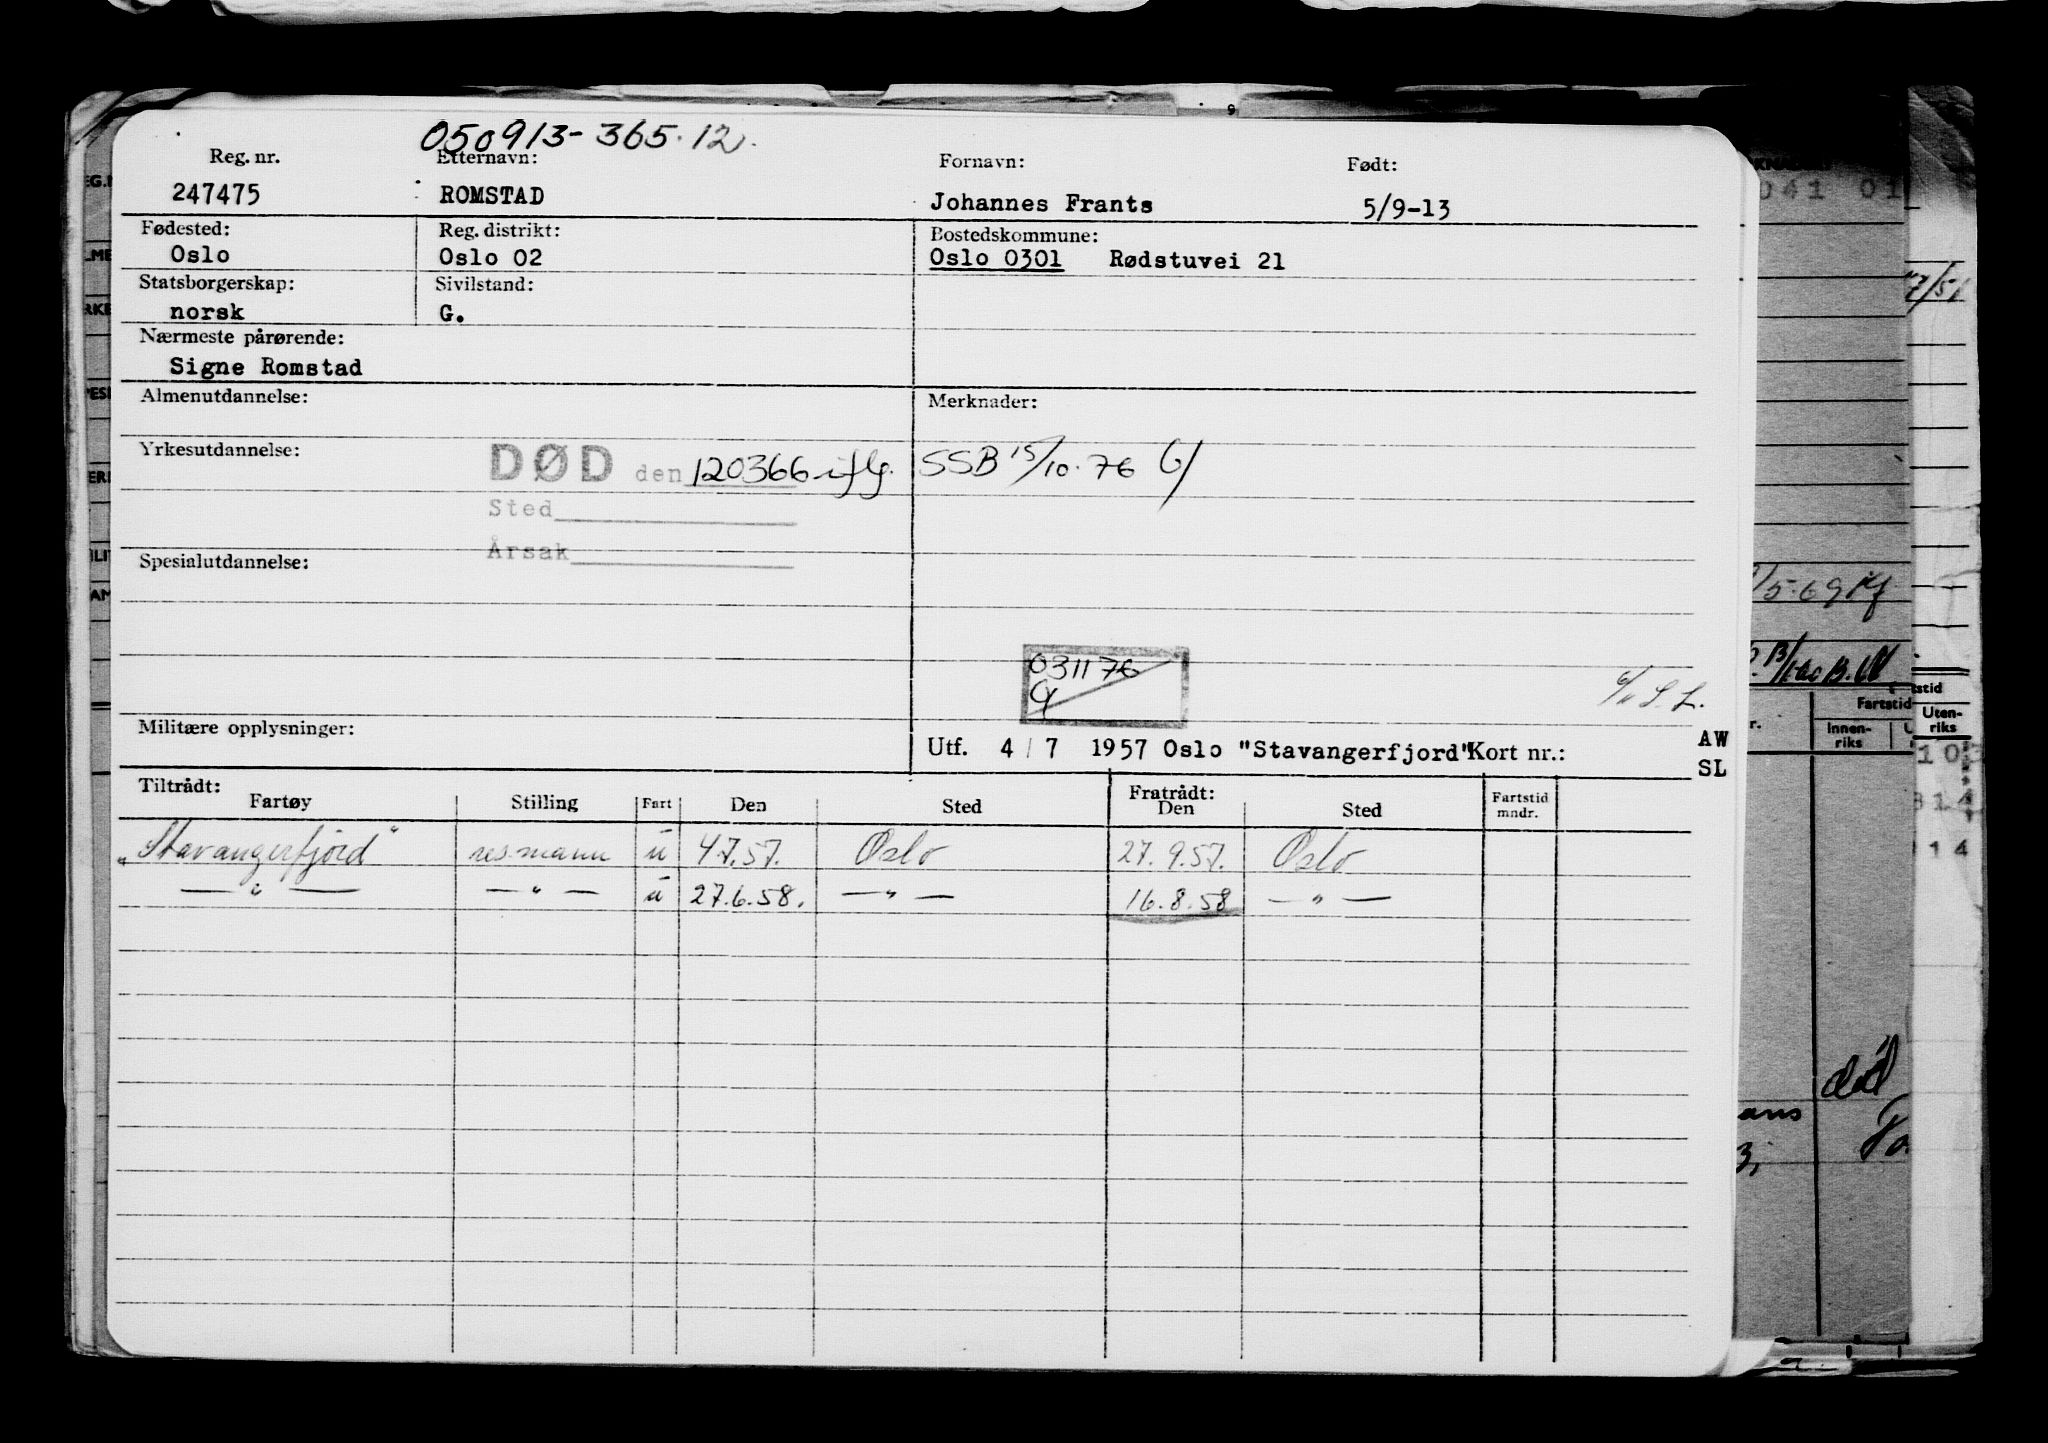 050913-365.12.
Reg. nr. Etternavn: Fornavn: Født:
247475 ROMSTAD Johannes Frants 5/9-13
Fødested: Reg. distrikt: Bostedskommune:
Oslo Oslo 02 Oslo 0301 Rødstuvei 21
Statsborgerskap: Sivilstand:
norsk G.
Nærmeste pårørende:
Signe Romstad
Almenutdannelse: Merknader:
Yrkesutdannelse: DØD den 120366 iflg. SSB 15/10.76 G
Sted
Årsak
Spesialutdannelse:
031176
G
S.L.
Militære opplysninger: Utf. 4/7 1957 Oslo "Stavangerfjord" Kort nr.: AW
SL
Tiltrådt: Fratrådt:
Fartøy Stilling Fart Den Sted Den Sted Fartstid
mndr.
"Stavangerfjord" resmann u 4.7.57. Oslo 27.9.57. Oslo
— " — — " — u 27.6.58. — " — 16.8.58 — " —
041 01
5-69
Fartstid
Innen-
riks
Uten-
riks
død